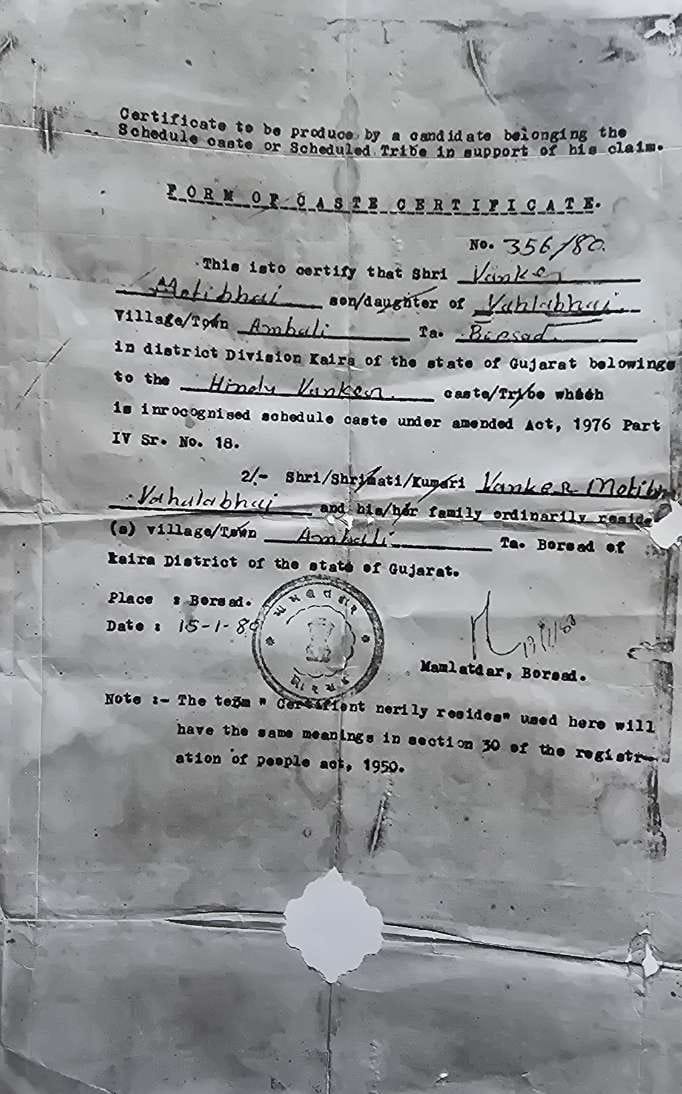 Certificate to be produce by a candidate belonging the
Schedule caste or Scheduled Tribe in support of his claim.
FORM OF CASTE CERTIFICATE.
No. 356/80.
This isto certify that Shri Vanker
Motibhai son/daughter of Vahlabhai
Village/Town Ambali Ta. Borsad.
in district Division Kaira of the state of Gujarat belowings
to the Hindu Vanker caste/Tribe which
is inrocognised schedule caste under amended Act, 1976 Part
IV Sr. No. 18.
2/- Shri/Shrimati/Kumari Vanker Motibh
Vahalabhai and his/her family ordinarily reside
(s) village/Town Ambali Ta. Borsad of
Kaira District of the state of Gujarat.
Place : Borsad.
Date : 15-1-80
Mamlatdar, Borsad.
Note :- The term " Certifient nerily resides" used here will
have the same meanings in section 30 of the registr-
ation of people act, 1950.